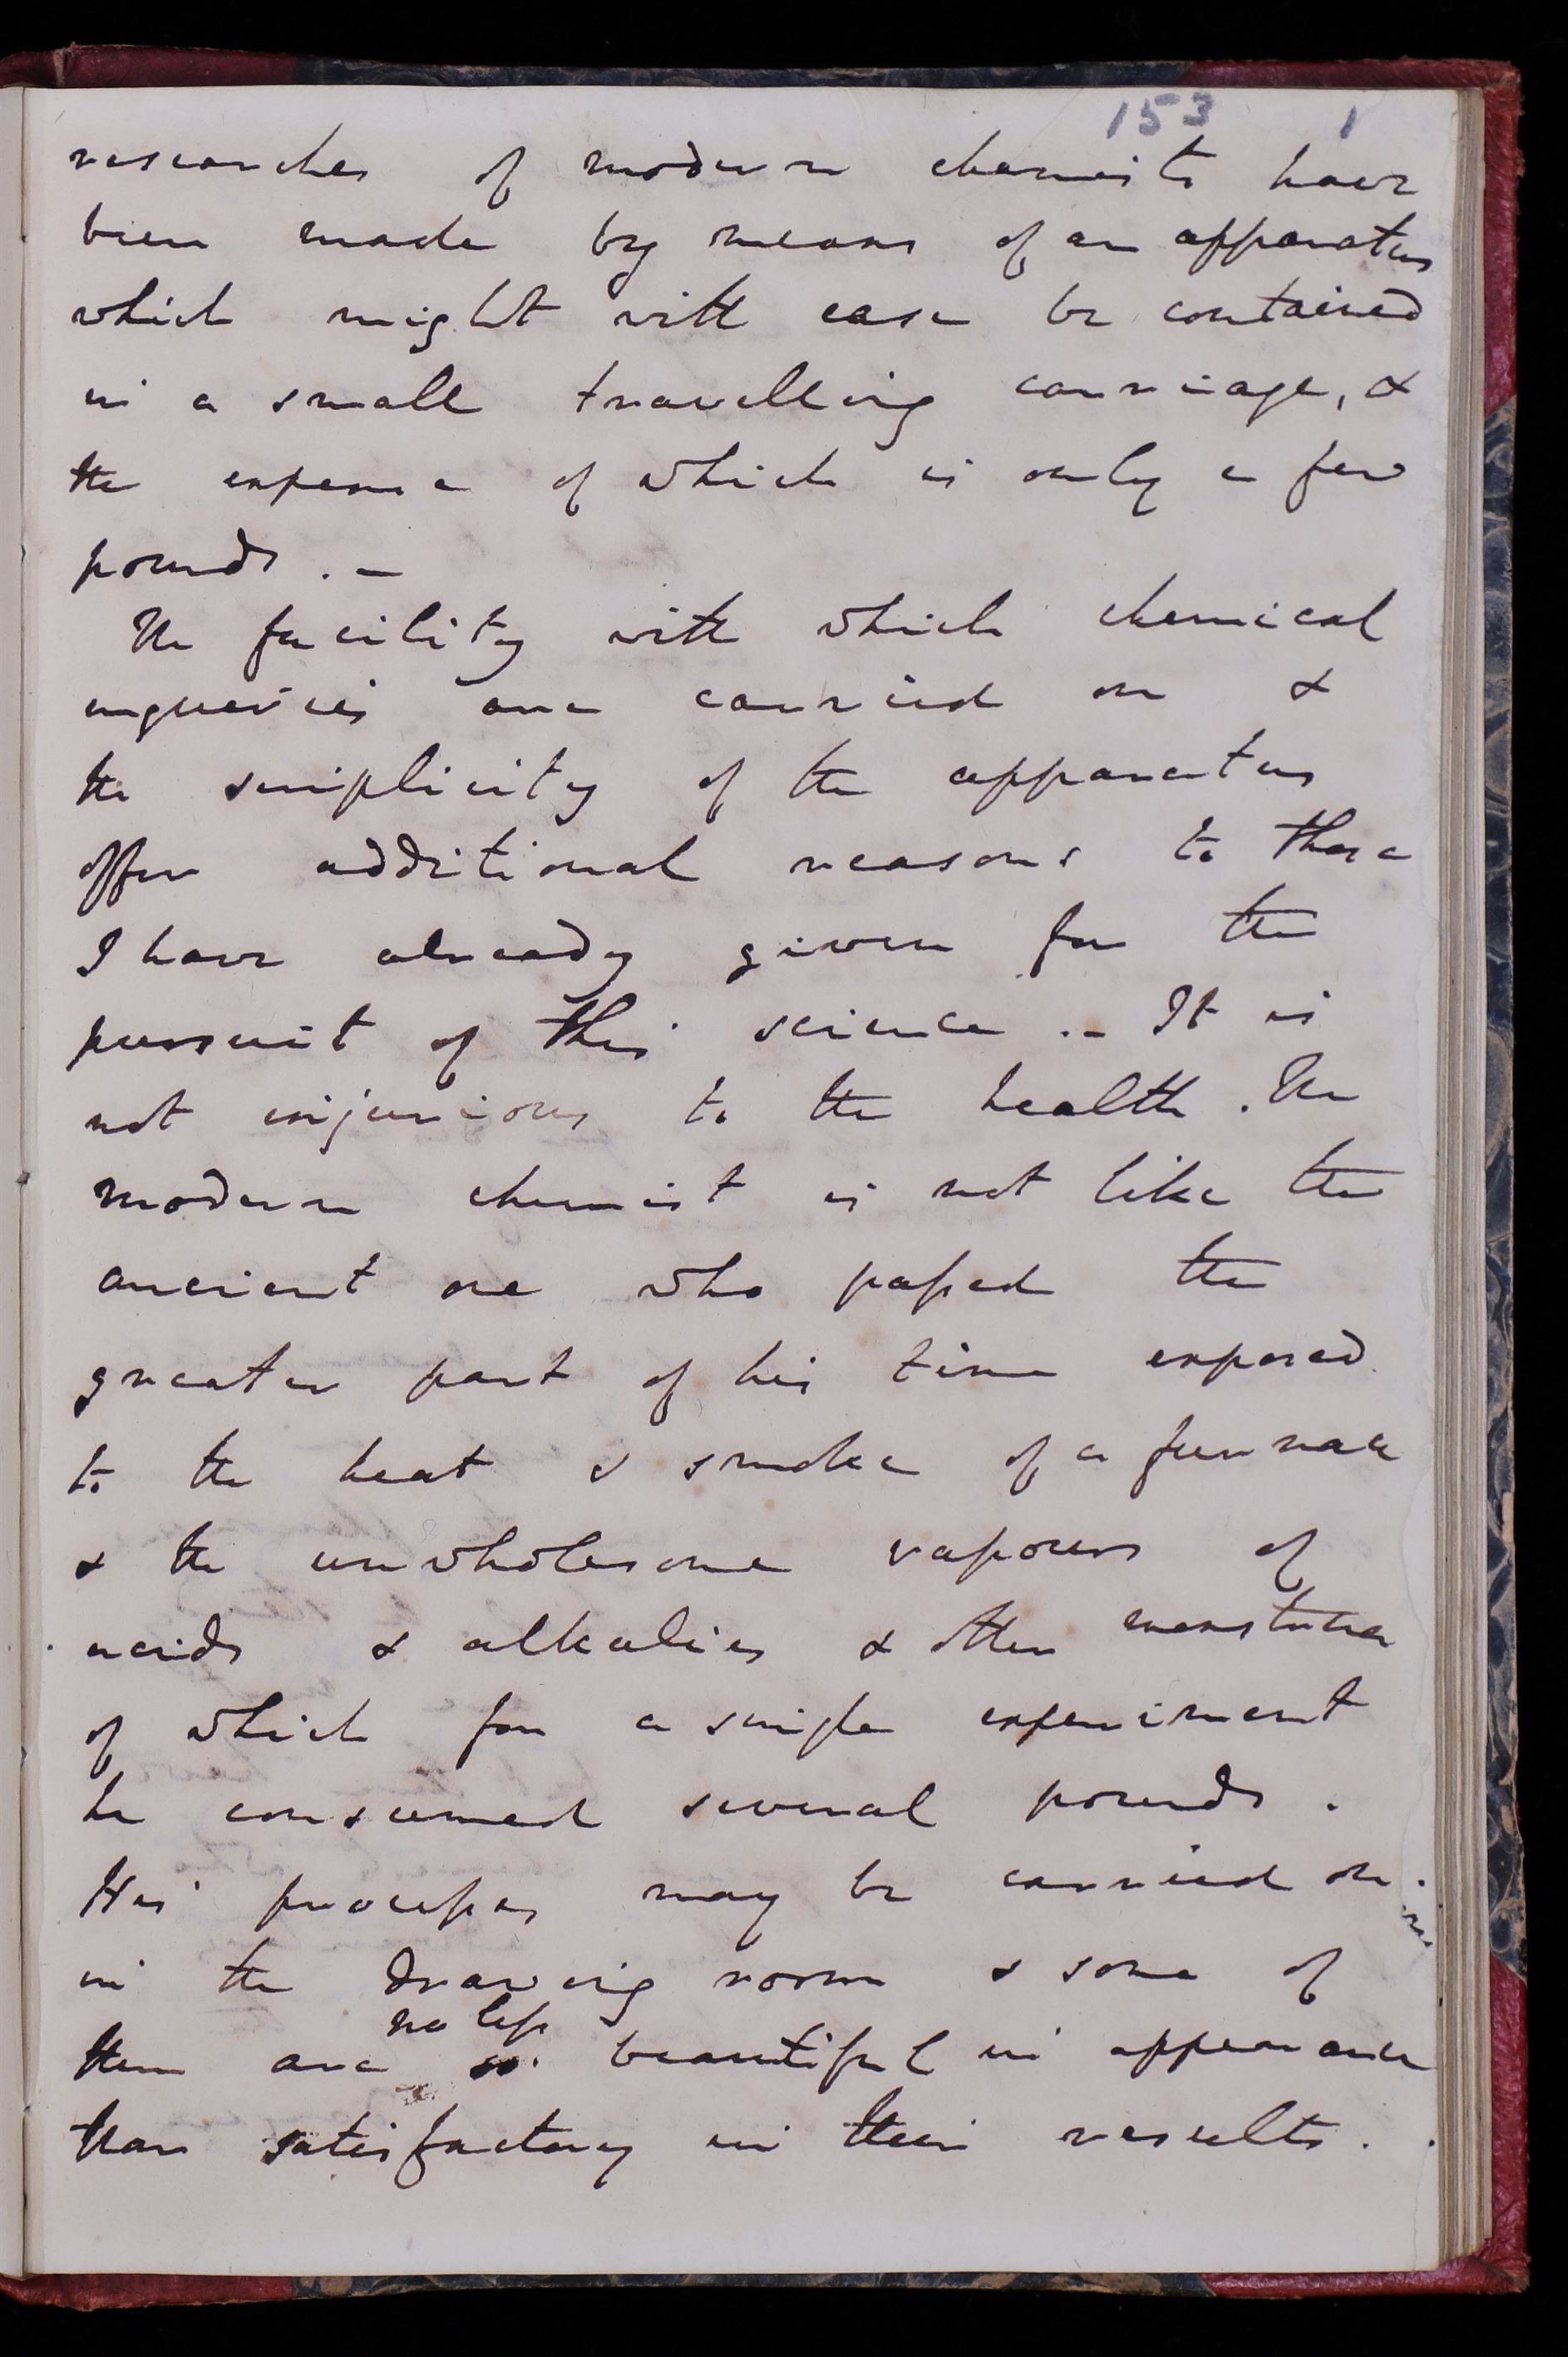 153 1
researches of modern chemists have
been made by means of an apparatus
which might with ease be contained
in a small travelling carriage, &
the expense of which is only a few
pounds . –
The facility with which chemical
enqueries are carried on &
the simplicity of the apparatus
offer additional reasons to those
I have already given for the
pursuit of this science .– It is
not injurious to the health . The
modern chemist is not like the
ancient one who passed the
greater part of his time exposed
to the heat & smoke of a furnace
& the unwholesome vapours of
acids & alkalies & other menstrua
of which for a single experiment
he consumed several pounds .
His processes may be carried on
in the drawing room & some of
no less
them are so beautiful in appearance
than satisfactory in their results .